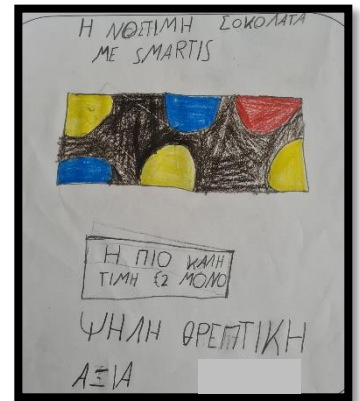 Η ΝΟΣΤΙΜΗ ΣΟΚΟΛΑΤΑ
ΜΕ SMARTIS
Η ΠΙΟ ΚΑΛΗ
ΤΙΜΗ €2 ΜΟΝΟ
ΨΗΛΗ ΘΡΕΠΤΙΚΗ
ΑΞΙΑ